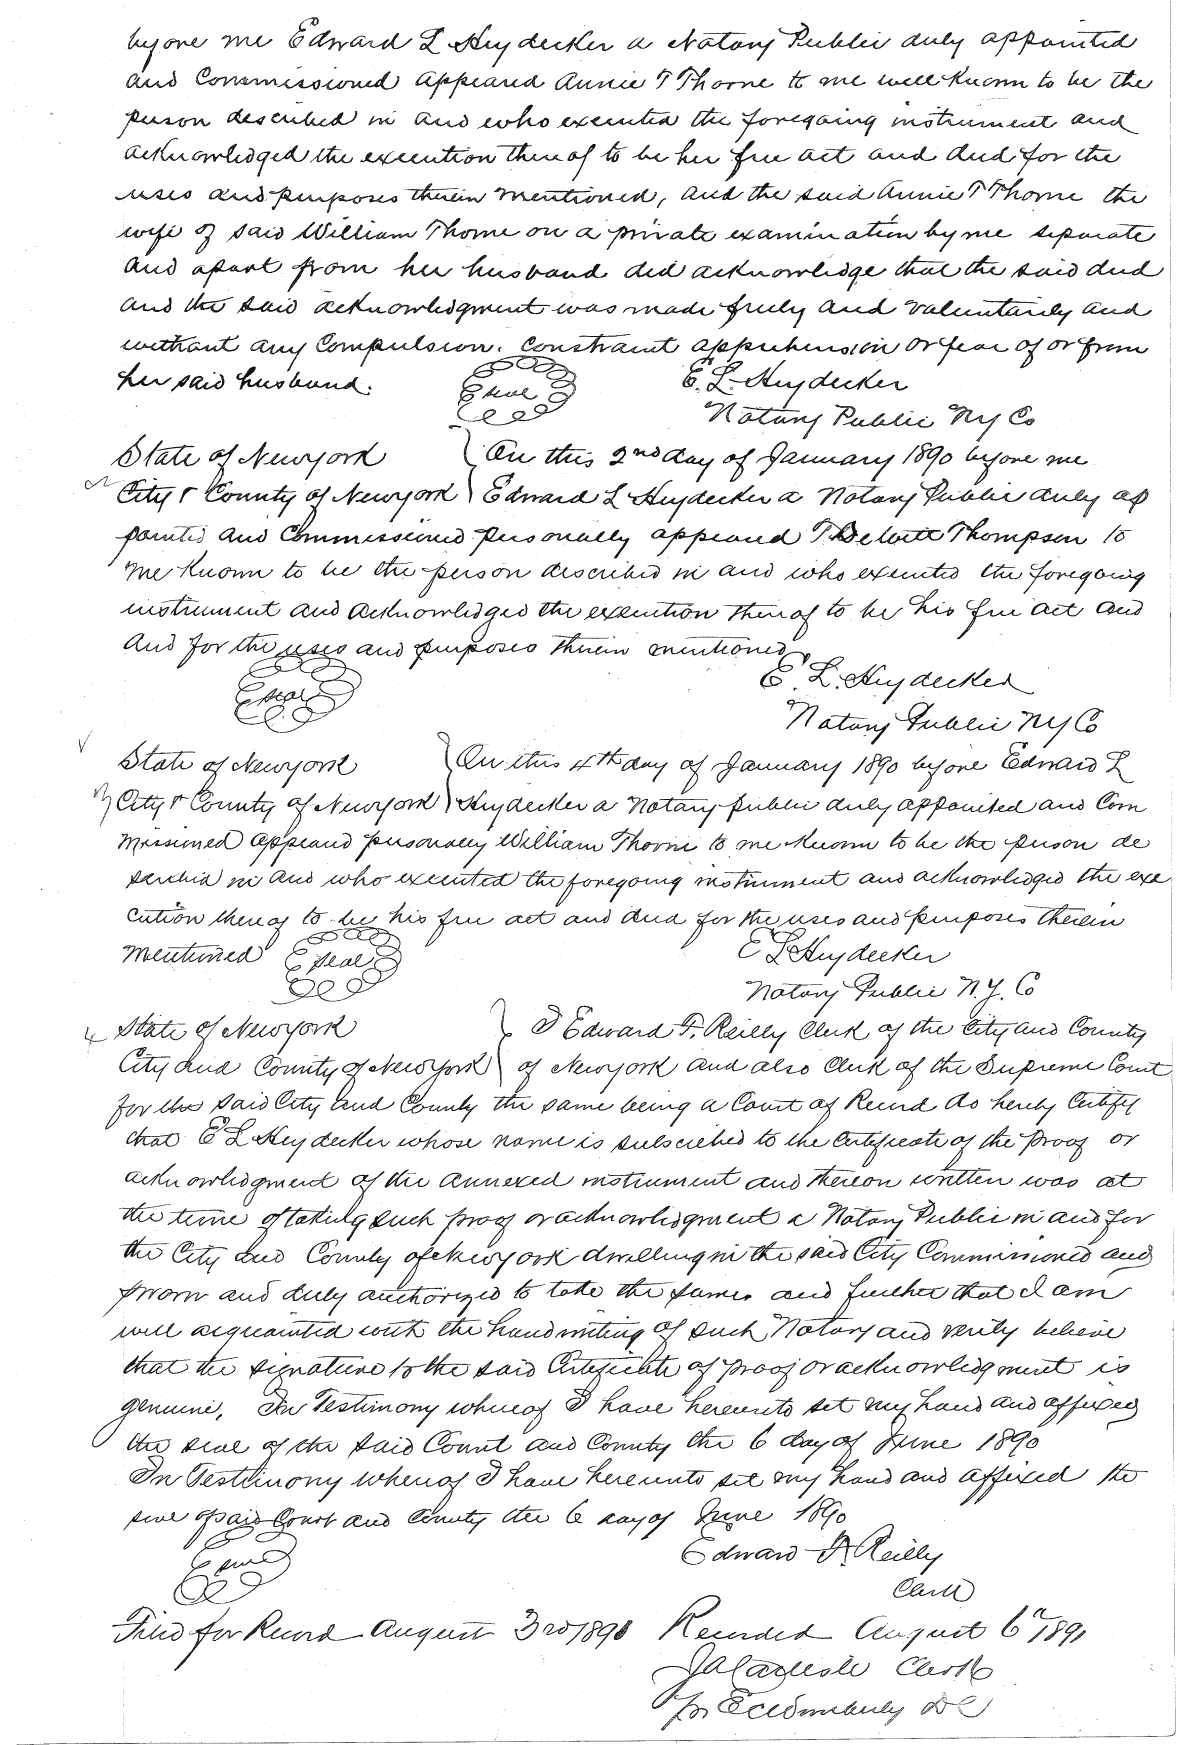 before me Edward L Heydecker a Notary Public duly appointed
and Commissioned appeared Annie T Thorne to me well known to be the
person described in and who executed the foregoing instrument and
acknowledged the execution thereof to be her free act and deed for the
uses and purposes therein mentioned, and the said Annie T Thorne the
wife of said William Thorne on a private examination by me separate
and apart from her husband did acknowledge that the said deed
and the said acknowledgment was made freely and voluntarily and
without any compulsion, constraint apprehension or fear of or from
her said husband.
Seal
E. L. Heydecker
Notary Public NY Co
State of New york
City & County of New york
On this 2nd day of January 1890 before me
Edward L Heydecker a Notary Public duly ap
pointed and Commissioned personally appeared T Dewitt Thompson to
me known to be the person described in and who executed the foregoing
instrument and acknowledged the execution thereof to be his free act and
and for the uses and purposes therein mentioned
Seal
E. L. Heydecker
Notary Public NY Co
State of New york
City & County of New york
On this 4th day of January 1890 before Edward L
Heydecker a Notary public duly appointed and Com
missioned appeared personally William Thorne to me known to be the person de
scribed in and who executed the foregoing instrument and acknowledged the exe
cution thereof to be his free act and deed for the uses and purposes therein
mentioned
Seal
E L Heydecker
Notary Public N.Y. Co
State of New york
City and County of New York
I Edward F. Reilly Clerk of the City and County
of New york and also Clerk of the Supreme Court
for the said City and County the same being a Court of Record do hereby Certify
that E L Heydecker whose name is subscribed to the Certificate of the proof or
acknowledgment of the annexed instrument and thereon written was at
the time of taking such proof or acknowledgment a Notary Public in and for
the City and County of New york dwelling in the said City Commissioned and
sworn and duly authorized to take the same and further that I am
well acquainted with the handwriting of such Notary and verily believe
that the signature to the said Certificate of proof or acknowledgment is
genuine. In Testimony whereof I have hereunto set my hand and affixed
the seal of the said Court and County the 6 day of June 1890
In Testimony whereof I have hereunto set my hand and affixed the
seal of said Court and County the 6 day of June 1890
Seal
Edward F. Reilly
Clerk
Filed for Record August 3rd 1890 Recorded August 6th 1891
Clerk
DC